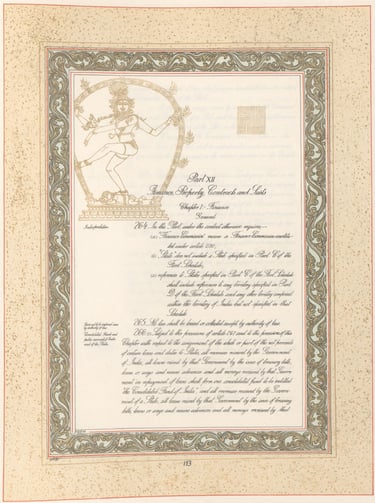 Part XII
Finance, Property, Contracts and Suits
Chapter I - Finance
General
Interpretation
264. In this Part, unless the context otherwise requires,—
(a) "Finance Commission" means a Finance Commission constitu-
ted under article 280;
(b) "State" does not include a State specified in Part C of the
First Schedule;
(c) references to States specified in Part C of the First Schedule
shall include references to any territory specified in Part
D of the First Schedule and any other territory comprised
within the territory of India but not specified in that
Schedule.
265. No tax shall be levied or collected except by authority of law.
266. (1) Subject to the provisions of article 267 and to the provisions of this
Chapter with respect to the assignment of the whole or part of the net proceeds
of certain taxes and duties to States, all revenues received by the Government
of India, all loans raised by that Government by the issue of treasury bills,
loans or ways and means advances and all moneys received by that Govern-
ment in repayment of loans shall form one consolidated fund to be entitled
"the Consolidated Fund of India", and all revenues received by the Govern-
ment of a State, all loans raised by that Government by the issue of treasury
bills, loans or ways and means advances and all moneys received by that
113